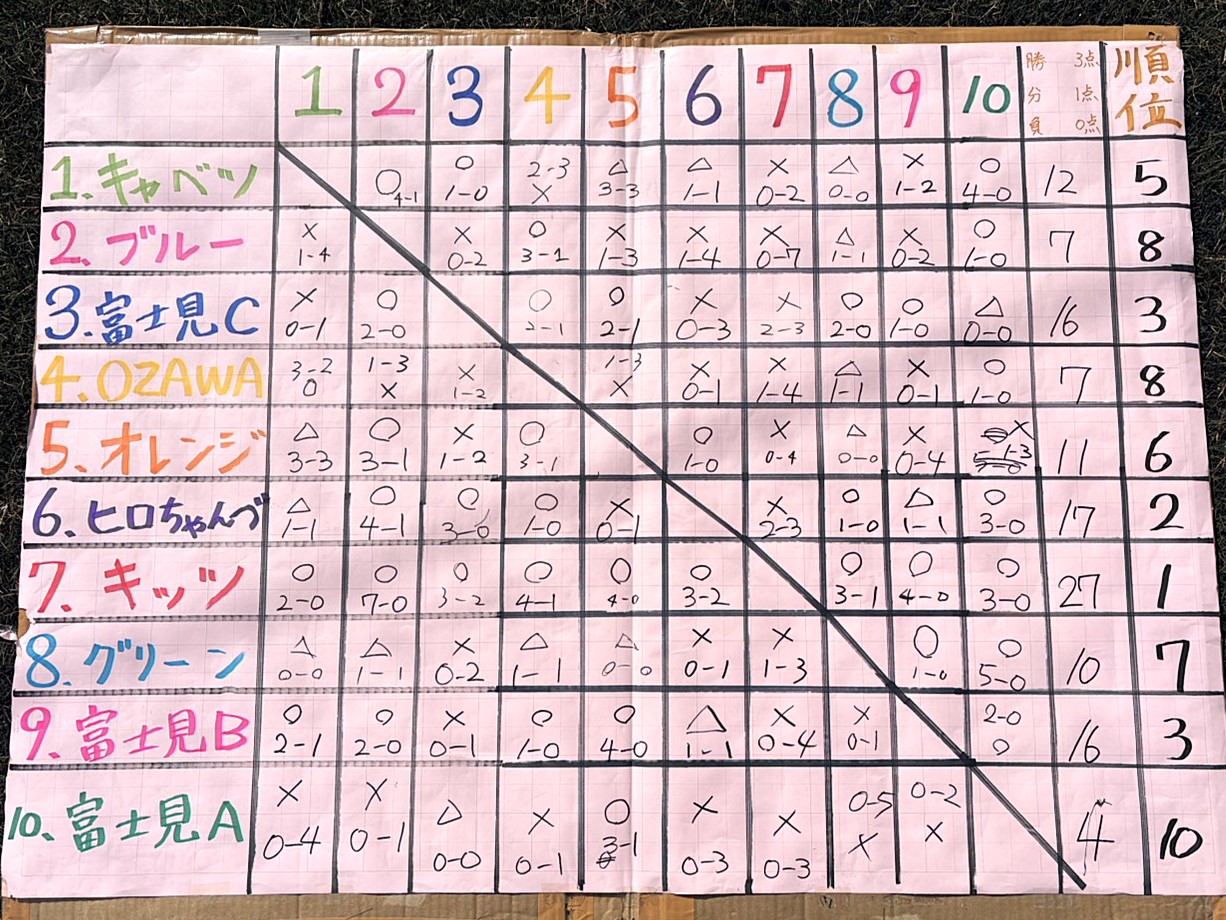 1 2 3 4 5 6 7 8 9 10 勝 3点 分 1点 負 0点 順位
1.キャベツ ○4-1 ○1-0 2-3× △3-3 △1-1 ×0-2 △0-0 ×1-2 ○4-0 12 5
2.ブルー ×1-4 ×0-2 ○3-1 ×1-3 ×1-4 ×0-7 △1-1 ×0-2 ○1-0 7 8
3.富士見C ×0-1 ○2-0 ○2-1 ○2-1 ×0-3 ×2-3 ○2-0 ○1-0 △0-0 16 3
4.OZAWA 3-2○ 1-3× ×1-2 1-3× ×0-1 ×1-4 △1-1 ×0-1 ○1-0 7 8
5.オレンジ △3-3 ○3-1 ×1-2 ○3-1 ○1-0 ×0-4 △0-0 ×0-4 ×1-3 11 6
6.ヒロちゃんづ △1-1 ○4-1 ○3-0 ○1-0 ×0-1 ×2-3 ○1-0 △1-1 ○3-0 17 2
7.キッツ ○2-0 ○7-0 ○3-2 ○4-1 ○4-0 ○3-2 ○3-1 ○4-0 ○3-0 27 1
8.グリーン △0-0 △1-1 ×0-2 △1-1 △0-0 ×0-1 ×1-3 ○1-0 ○5-0 10 7
9.富士見B ○2-1 ○2-0 ×0-1 ○1-0 ○4-0 △1-1 ×0-4 ×0-1 2-0○ 16 3
10.富士見A ×0-4 ×0-1 △0-0 ×0-1 ○3-1 ×0-3 ×0-3 0-5× 0-2× 4 10